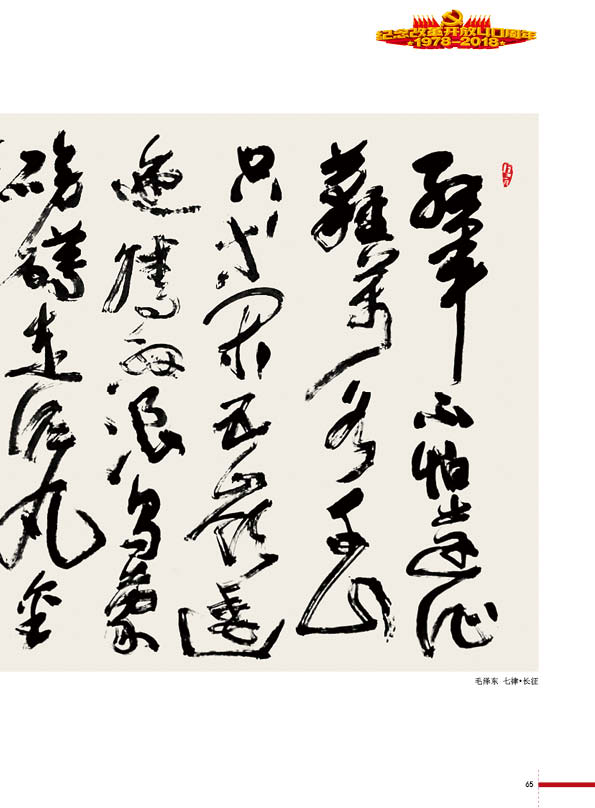 纪念改革开放40周年
1978-2018
紅軍不怕遠征
難萬水千山
只等閑五嶺逶
迤騰細浪烏蒙
磅礴走泥丸金
毛泽东 七律·长征
65